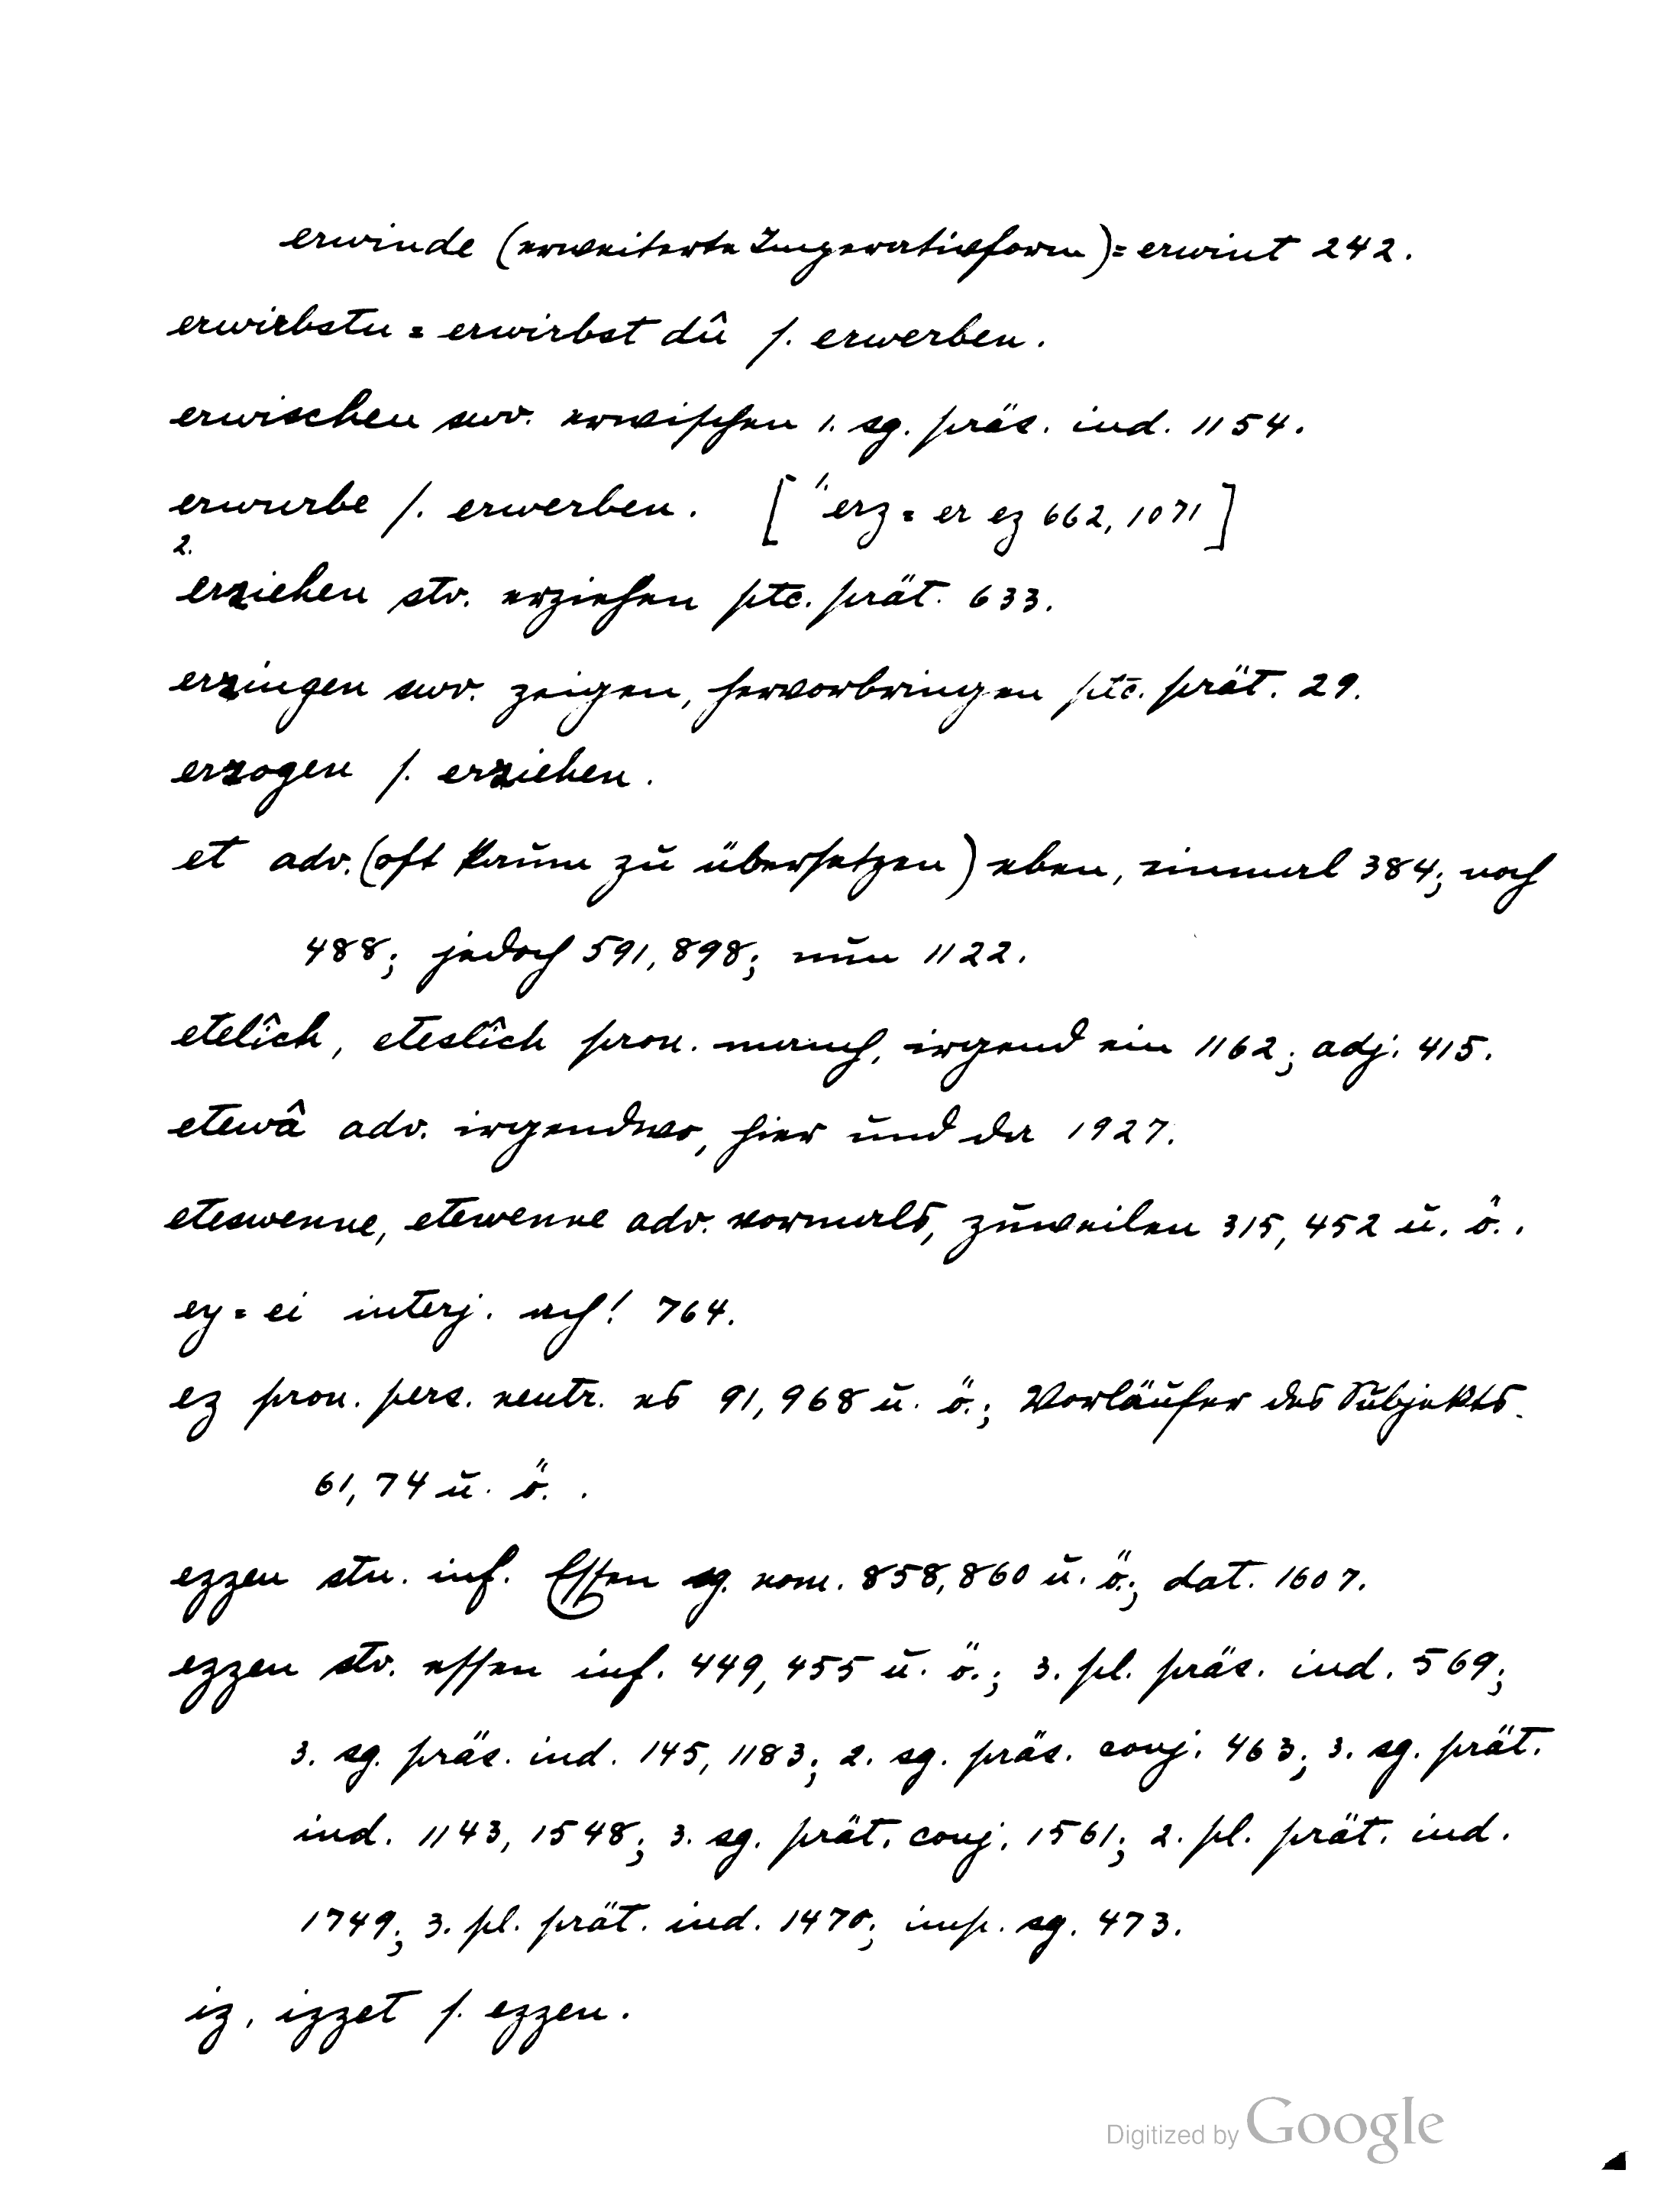 erwinde (erweiterte Imperativform) = erwint 242.
erwirbstu = erwirbst dû s. erwerben.
erwischen swv. erwischen 1. sg. präs. ind. 1154.
erwurbe s. erwerben. [1. erz = er ez 662, 1071]
2.
erziehen stv. erziehen ptc. prät. 633.
erzingen swv. zeigen, hervorbringen ptc. prät. 29.
erzogen s. erziehen.
et adv. (oft kaum zu übersetzen) eben, einmal 384; noch
488; jedoch 591, 898; nun 1122.
etelîch, eteslîch pron. manch, irgend ein 1162; adj. 415.
etewâ adv. irgendwo, hier und da 1927.
eteswenne, etewenne adv. vormals, zuweilen 315, 452 u. ö..
ey = ei interj. ach! 764.
ez pron. pers. neutr. es 91, 968 u. ö.; Vorläufer des Subjekts
61, 74 u. ö. .
ezzen stn. inf. Essen sg. nom. 858, 860 u. ö.; dat. 1607.
ezzen stv. essen inf. 449, 455 u. ö.; 3. pl. präs. ind. 569;
3. sg. präs. ind. 145, 1183; 2. sg. präs. conj. 463; 3. sg. prät.
ind. 1143, 1548; 3. sg. prät. conj. 1561; 2. pl. prät. ind.
1749; 3. pl. prät. ind. 1470; imp. sg. 473.
iz, izzet s. ezzen.
Digitized by Google